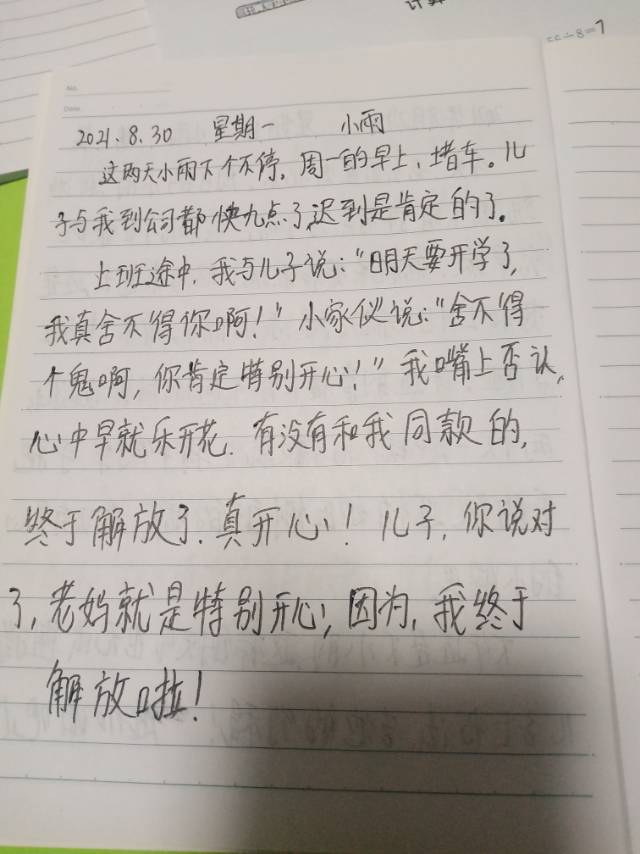 2021.8.30 星期一 小雨
这两天小雨下个不停,周一的早上,堵车。儿
子与我到公司都快九点了,迟到是肯定的了。
上班途中,我与儿子说:“明天要开学了,
我真舍不得你啊!”小家伙说:“舍不得
个鬼啊,你肯定特别开心!”我嘴上否认,
心中早就乐开花.有没有和我同款的,
终于解放了.真开心!儿子,你说对
了,老妈就是特别开心,因为,我终于
解放啦!